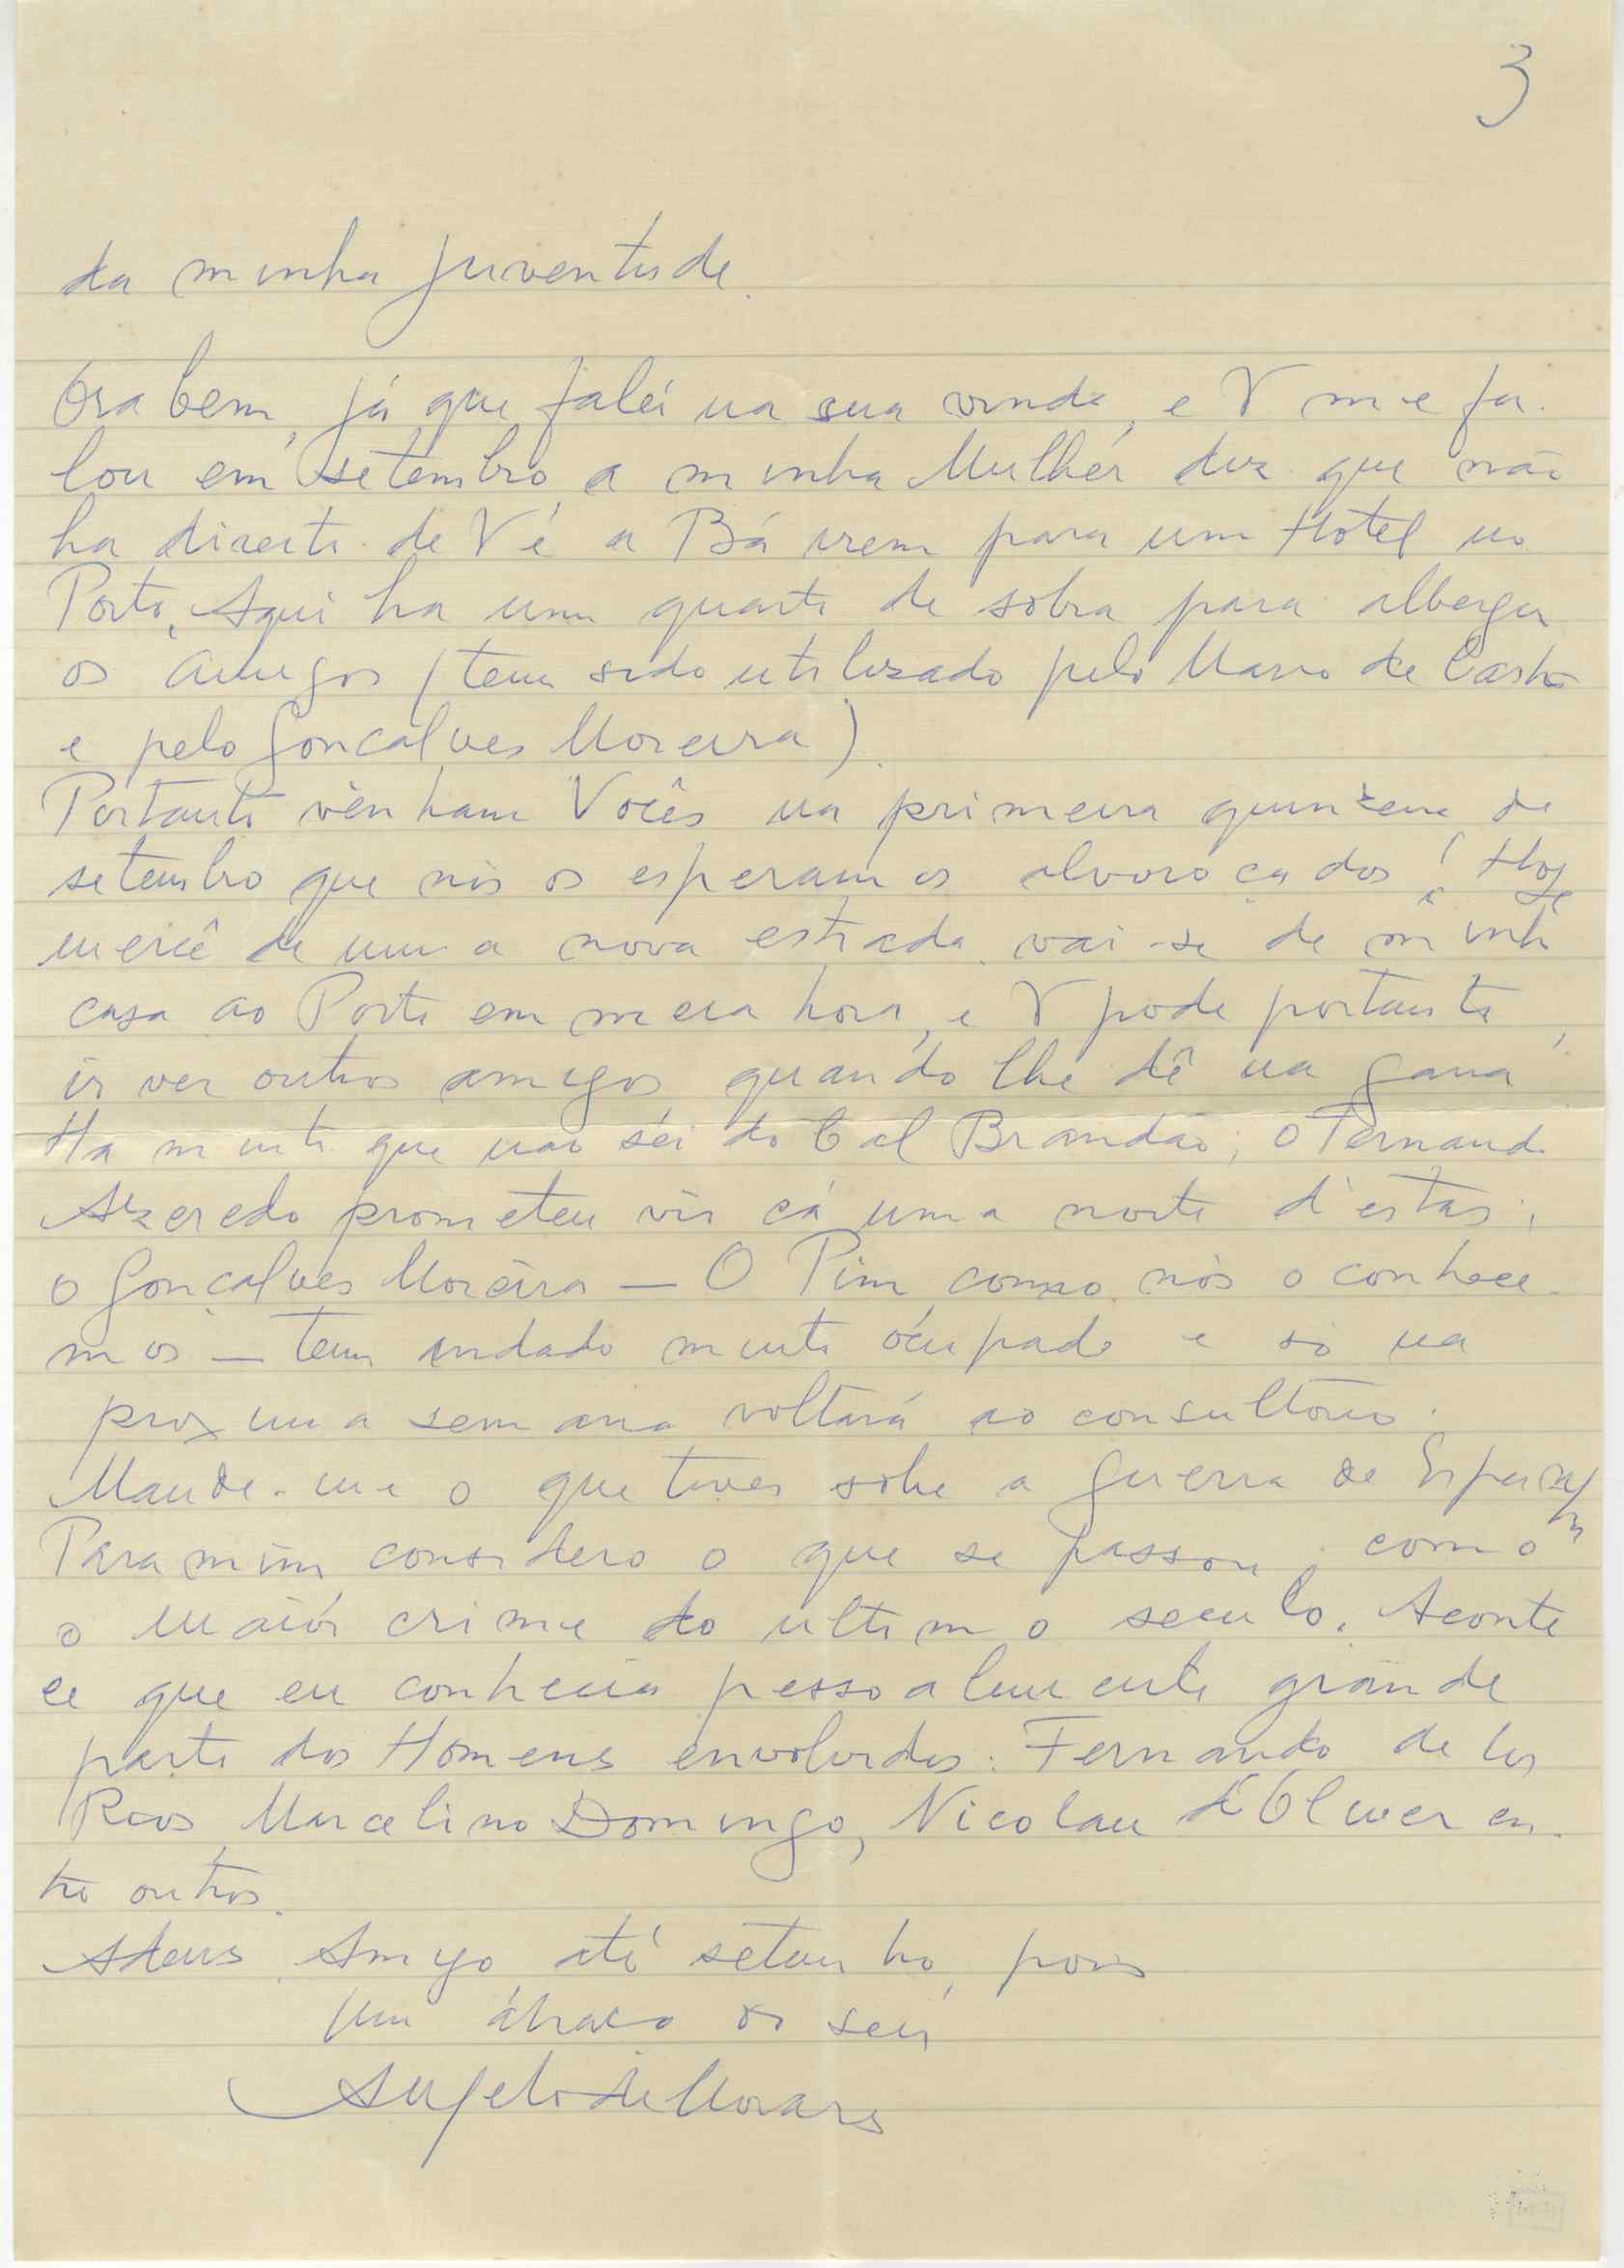 3
da minha juventude.
Ora bem, já que falei na sua vinda, e V me fa-
lou em setembro, a minha Mulher diz que não
ha direito de V é a Bá irem para um Hotel no
Porto. Aqui ha um quarto de sobra para albergar
os amigos (tem sido utilizado pelo Mario de Castro
e pelo Gonçalves Moreira).
Portanto vênham Vocês na primeira quinzena de
setembro que nós os esperamos alvoroçados! Hoje
mercê de uma nova estrada vai-se de minha
casa ao Porto em meia hora, e V pode portanto,
ir ver outros amigos quando lhe dê na gana
Ha muito que não sei do Cal Brandão; o Fernando
Azeredo prometeu vir cá uma noite d'estas;
o Gonçalves Moreira — O Pim, como nós o conhece-
mos — tem andado muito ocupado e só na
proxima semana voltará ao consultorio.
Mande-me o que tiver sobre a guerra de Espanha
Para mim considero o que se passou, como
o maiór crime do ultimo seculo. Aconte
ce que eu conhecia pessoalmente grande
parte dos Homens envolvidos: Fernando de los
Rios, Marcelino Domingo, Nicolau d'Olwer en-
tre outros.
Adeus Amigo, até setembro, pois
Um abraço do seu
Angelo de Morais